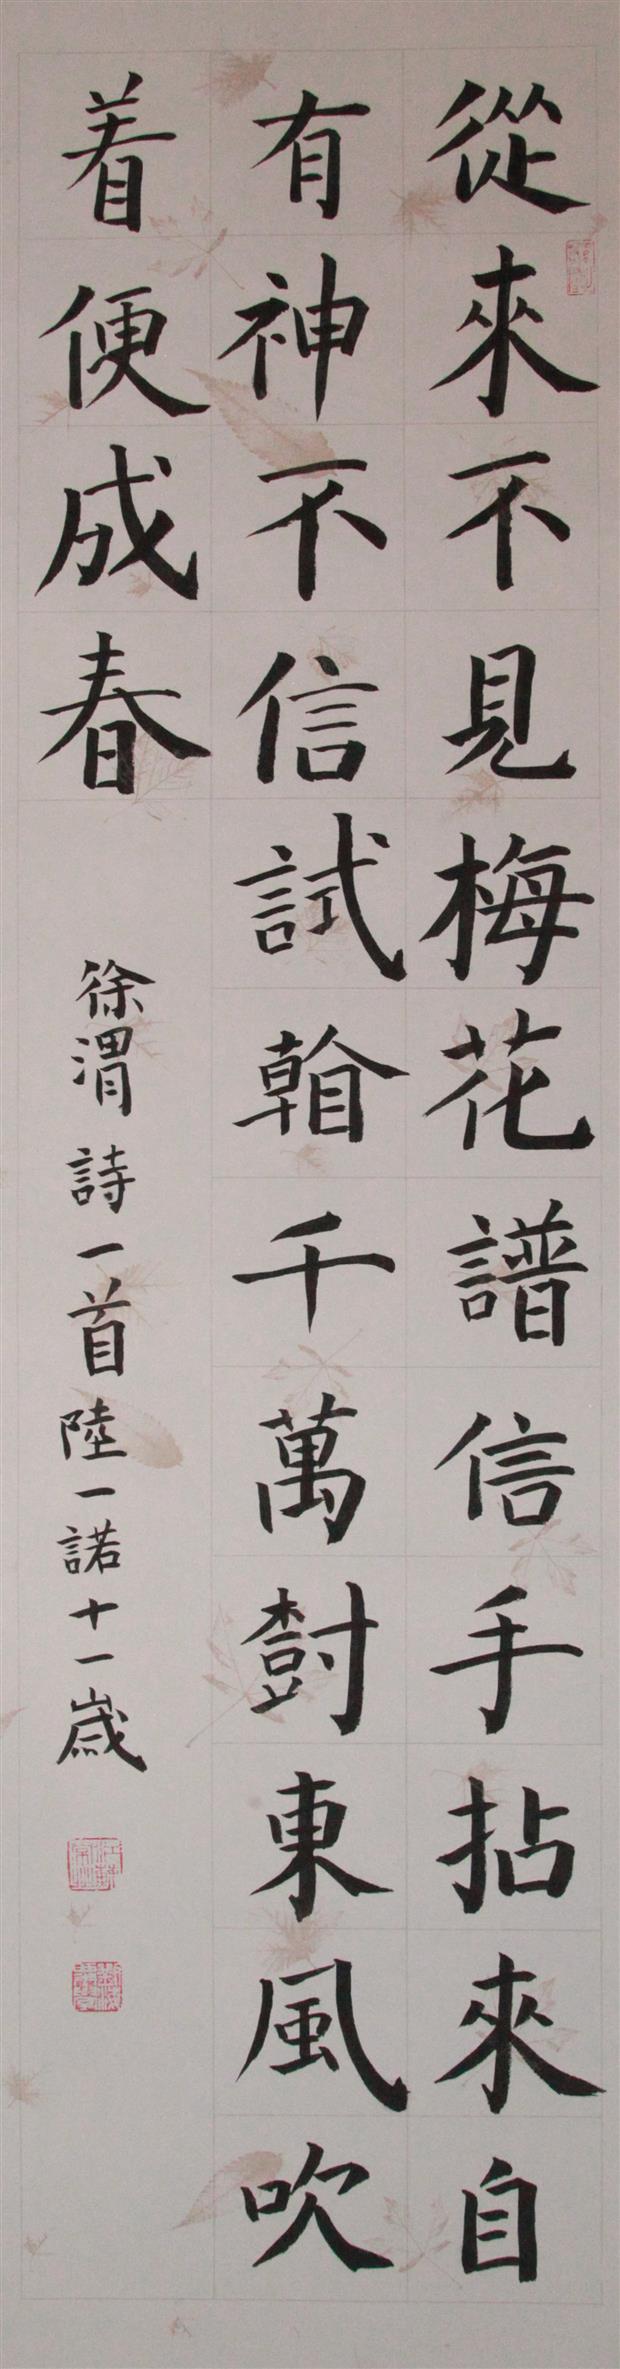 從來不見梅花譜信手拈來自
有神不信試看千萬樹東風吹
着便成春
徐渭詩一首陸一諾十一歲